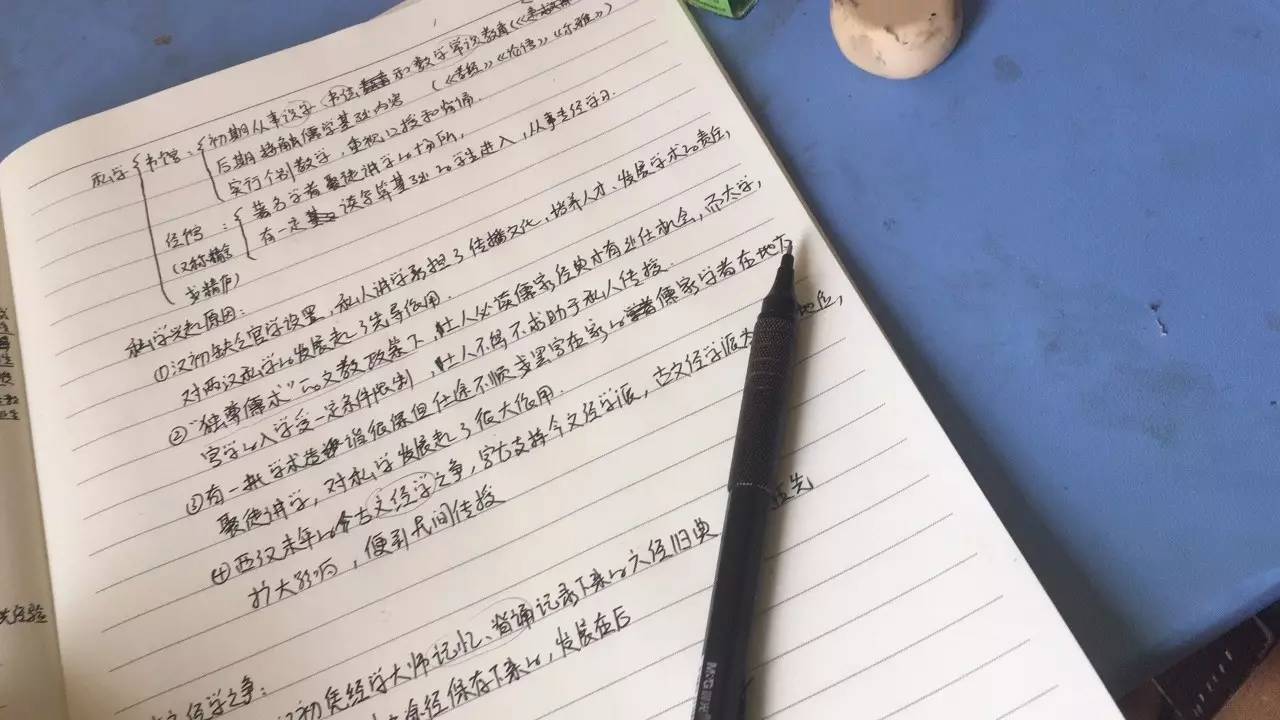 私学 书馆：初期从事识字、书法和数学常识教育
后期接触儒学基础内容（《孝经》《论语》《尔雅》）
实行个别教学，重视口授和背诵.
经馆：著名学者聚徒讲学的场所，
（又称精舍 有一定读写算基础的学生进入，从事专经学习.
或精庐）
私学兴起原因：
①汉初缺乏官学设置，私人讲学承担了传播文化、培养人才、发展学术的责任，
对两汉私学的发展起了先导作用.
②"独尊儒术"的文教政策下，士人必读儒家经典才有出仕机会，而太学，
官学的入学受一定条件限制，士人不得不求助于私人传授.
③有一批学术造诣很深但仕途不顺或罢官在家的儒家学者在地方
聚徒讲学，对私学发展起了很大作用.
④西汉末年的今古文经学之争，官方支持今文经学派，古文经学派为 地位，
扩大影响，便到民间传授
经学之争：
初凭经学大师记忆、背诵记录下来的六经旧典
途径保存下来的，发展在后
先
经验
M&G 晨光